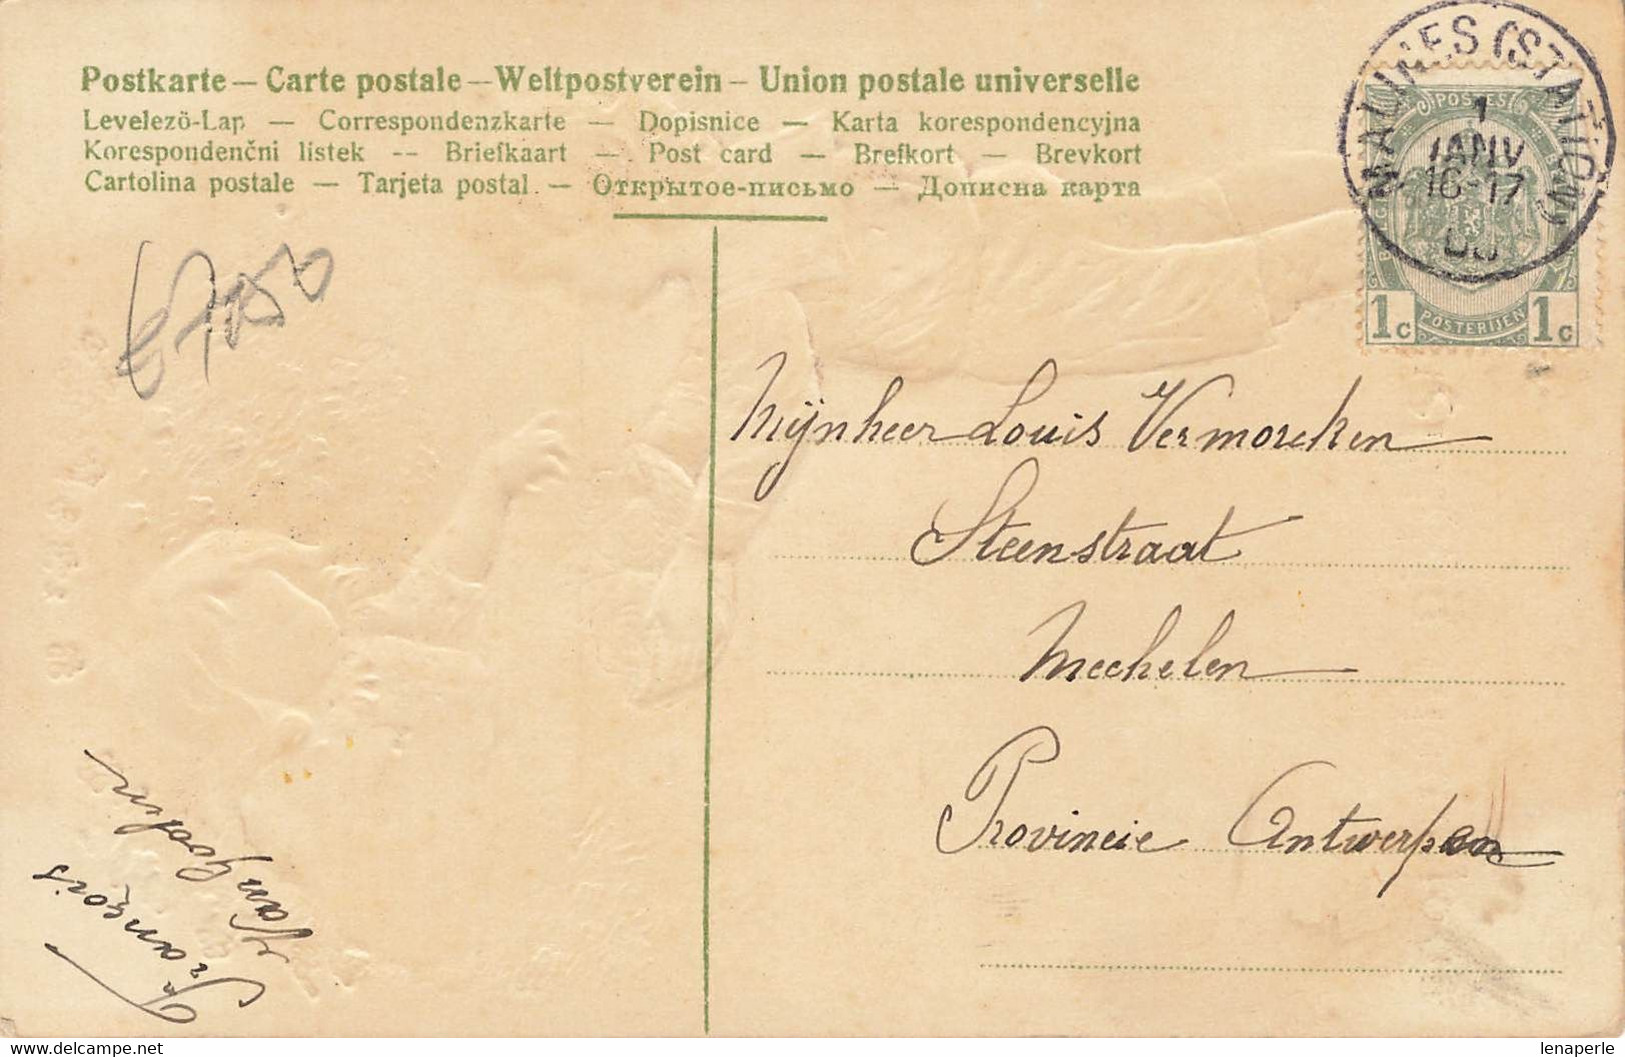 Postkarte — Carte postale — Weltpostverein — Union postale universelle
Levelezö-Lap — Correspondenzkarte — Dopisnice — Karta korespondencyjna
Korespondenční listek -- Briefkaart — Post card — Brefkort — Brevkort
Cartolina postale — Tarjeta postal. — Открытое-письмо — Дописна карта
MALINES (STATION)
1
JANV
16-17
POSTES
1c POSTERIJEN 1c
Mijnheer Louis Vermorcken
Steenstraat
Mechelen
Provincie Antwerpen
François
delcampe.net
lenaperle